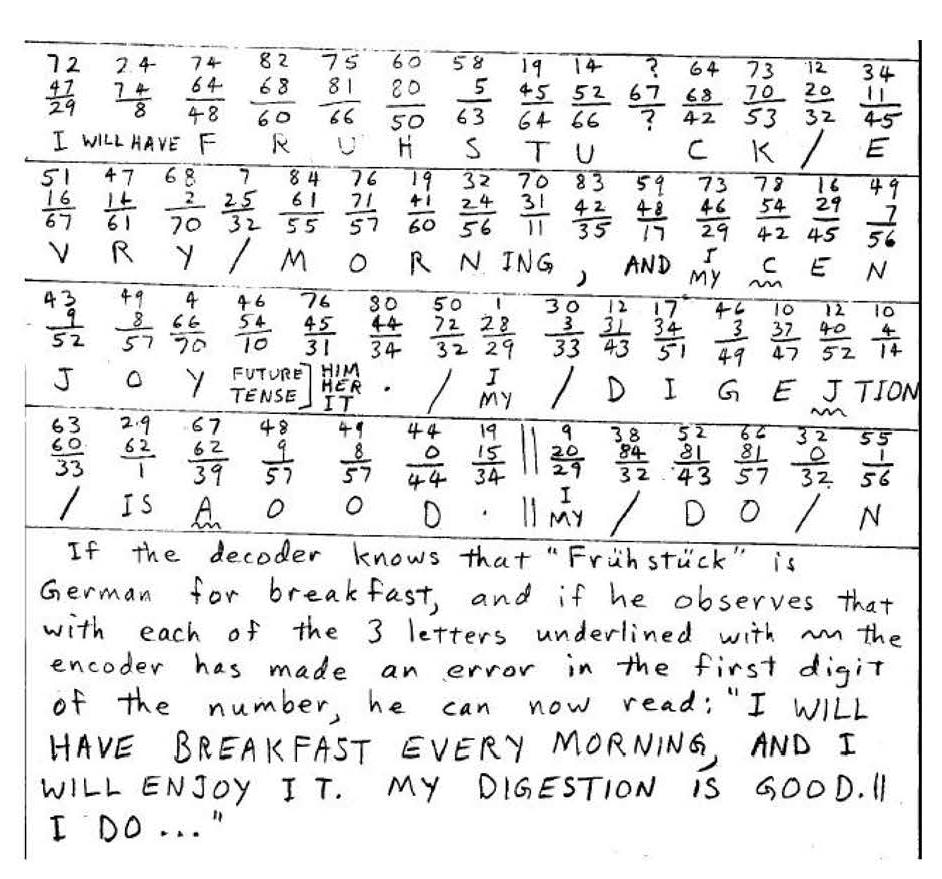 72 24 74 82 75 60 58 19 14 ? 64 73 12 34
47 74 64 68 81 80 5 45 52 67 68 70 20 11
29 8 48 60 66 50 63 64 66 ? 42 53 32 45
I WILL HAVE F R U H S T U C K / E
51 47 68 7 84 76 19 32 70 83 59 73 78 16 49
16 14 2 25 61 71 41 24 31 42 48 46 54 29 7
67 61 70 32 55 57 60 56 11 35 17 29 42 45 56
V R Y / M O R N ING , AND I MY C E N
43 49 4 46 76 80 50 1 30 12 17 46 10 12 10
9 8 66 54 45 44 72 28 3 31 34 3 37 40 4
52 57 70 10 31 34 32 29 33 43 51 49 47 52 14
J O Y FUTURE TENSE] HIM HER IT . / I MY / D I G E J TION
63 29 67 48 49 44 19 || 9 38 52 66 32 55
60 62 62 9 8 0 15 20 84 81 81 0 1
33 1 39 57 57 44 34 29 32 43 57 32 56
/ IS A O O D . || I MY / D O / N
If the decoder knows that "Früh stück" is
German for breakfast, and if he observes that
with each of the 3 letters underlined with the
encoder has made an error in the first digit
of the number, he can now read: "I WILL
HAVE BREAKFAST EVERY MORNING, AND I
WILL ENJOY IT. MY DIGESTION IS GOOD.||
I DO ..."